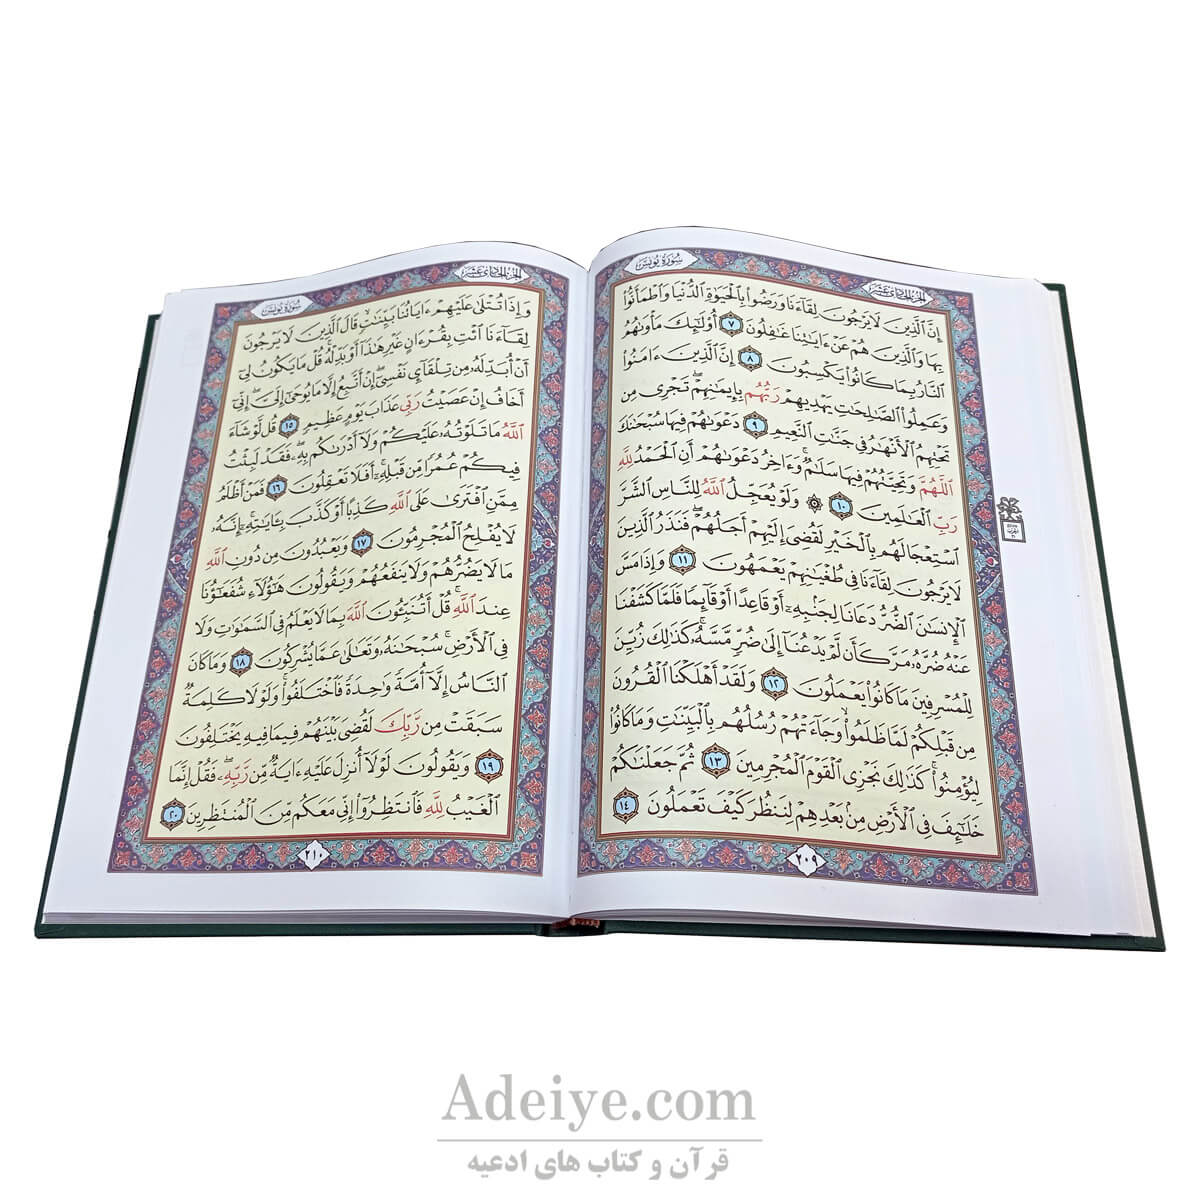 الجزء الحادي عشر
سُورَةُ يُونِسَ
إِنَّ ٱلَّذِينَ لَا يَرْجُونَ لِقَآءَنَا وَرَضُوا۟ بِٱلْحَيَوٰةِ ٱلدُّنْيَا وَٱطْمَأَنُّوا۟
بِهَا وَٱلَّذِينَ هُمْ عَنْ ءَايَٰتِنَا غَٰفِلُونَ ٧ أُو۟لَٰٓئِكَ مَأْوَىٰهُمُ
ٱلنَّارُ بِمَا كَانُوا۟ يَكْسِبُونَ ٨ إِنَّ ٱلَّذِينَ ءَامَنُوا۟
وَعَمِلُوا۟ ٱلصَّٰلِحَٰتِ يَهْدِيهِمْ رَبُّهُم بِإِيمَٰنِهِمْ ۖ تَجْرِى مِن
تَحْتِهِمُ ٱلْأَنْهَٰرُ فِى جَنَّٰتِ ٱلنَّعِيمِ ٩ دَعْوَىٰهُمْ فِيهَا سُبْحَٰنَكَ
ٱللَّهُمَّ وَتَحِيَّتُهُمْ فِيهَا سَلَٰمٌ ۚ وَءَاخِرُ دَعْوَىٰهُمْ أَنِ ٱلْحَمْدُ لِلَّهِ
رَبِّ ٱلْعَٰلَمِينَ ١٠ ۞ وَلَوْ يُعَجِّلُ ٱللَّهُ لِلنَّاسِ ٱلشَّرَّ
ٱسْتِعْجَالَهُم بِٱلْخَيْرِ لَقُضِىَ إِلَيْهِمْ أَجَلُهُمْ ۖ فَنَذَرُ ٱلَّذِينَ
لَا يَرْجُونَ لِقَآءَنَا فِى طُغْيَٰنِهِمْ يَعْمَهُونَ ١١ وَإِذَا مَسَّ
ٱلْإِنسَٰنَ ٱلضُّرُّ دَعَانَا لِجَنۢبِهِۦٓ أَوْ قَاعِدًا أَوْ قَآئِمًا فَلَمَّا كَشَفْنَا
عَنْهُ ضُرَّهُۥ مَرَّ كَأَن لَّمْ يَدْعُنَآ إِلَىٰ ضُرٍّ مَّسَّهُۥ ۚ كَذَٰلِكَ زُيِّنَ
لِلْمُسْرِفِينَ مَا كَانُوا۟ يَعْمَلُونَ ١٢ وَلَقَدْ أَهْلَكْنَا ٱلْقُرُونَ
مِن قَبْلِكُمْ لَمَّا ظَلَمُوا۟ ۙ وَجَآءَتْهُمْ رُسُلُهُم بِٱلْبَيِّنَٰتِ وَمَا كَانُوا۟
لِيُؤْمِنُوا۟ ۚ كَذَٰلِكَ نَجْزِى ٱلْقَوْمَ ٱلْمُجْرِمِينَ ١٣ ثُمَّ جَعَلْنَٰكُمْ
خَلَٰٓئِفَ فِى ٱلْأَرْضِ مِنۢ بَعْدِهِمْ لِنَنظُرَ كَيْفَ تَعْمَلُونَ ١٤
٢٠٩
الجزء الحادي عشر
سُورَةُ يُونِسَ
وَإِذَا تُتْلَىٰ عَلَيْهِمْ ءَايَاتُنَا بَيِّنَٰتٍ ۙ قَالَ ٱلَّذِينَ لَا يَرْجُونَ
لِقَآءَنَا ٱئْتِ بِقُرْءَانٍ غَيْرِ هَٰذَآ أَوْ بَدِّلْهُ ۚ قُلْ مَا يَكُونُ لِىٓ
أَنْ أُبَدِّلَهُۥ مِن تِلْقَآئِ نَفْسِىٓ ۖ إِنْ أَتَّبِعُ إِلَّا مَا يُوحَىٰٓ إِلَىَّ ۖ إِنِّىٓ
أَخَافُ إِنْ عَصَيْتُ رَبِّى عَذَابَ يَوْمٍ عَظِيمٍ ١٥ قُل لَّوْ شَآءَ
ٱللَّهُ مَا تَلَوْتُهُۥ عَلَيْكُمْ وَلَآ أَدْرَىٰكُم بِهِۦ ۖ فَقَدْ لَبِثْتُ
فِيكُمْ عُمُرًا مِّن قَبْلِهِۦٓ ۚ أَفَلَا تَعْقِلُونَ ١٦ فَمَنْ أَظْلَمُ
مِمَّنِ ٱفْتَرَىٰ عَلَى ٱللَّهِ كَذِبًا أَوْ كَذَّبَ بِـَٔايَٰتِهِۦٓ ۚ إِنَّهُۥ
لَا يُفْلِحُ ٱلْمُجْرِمُونَ ١٧ وَيَعْبُدُونَ مِن دُونِ ٱللَّهِ
مَا لَا يَضُرُّهُمْ وَلَا يَنفَعُهُمْ وَيَقُولُونَ هَٰٓؤُلَآءِ شُفَعَٰٓؤُنَا
عِندَ ٱللَّهِ ۚ قُلْ أَتُنَبِّـُٔونَ ٱللَّهَ بِمَا لَا يَعْلَمُ فِى ٱلسَّمَٰوَٰتِ وَلَا
فِى ٱلْأَرْضِ ۚ سُبْحَٰنَهُۥ وَتَعَٰلَىٰ عَمَّا يُشْرِكُونَ ١٨ وَمَا كَانَ
ٱلنَّاسُ إِلَّآ أُمَّةً وَٰحِدَةً فَٱخْتَلَفُوا۟ ۚ وَلَوْلَا كَلِمَةٌ
سَبَقَتْ مِن رَّبِّكَ لَقُضِىَ بَيْنَهُمْ فِيمَا فِيهِ يَخْتَلِفُونَ
١٩ وَيَقُولُونَ لَوْلَآ أُنزِلَ عَلَيْهِ ءَايَةٌ مِّن رَّبِّهِۦ ۖ فَقُلْ إِنَّمَا
ٱلْغَيْبُ لِلَّهِ فَٱنتَظِرُوٓا۟ إِنِّى مَعَكُم مِّنَ ٱلْمُنتَظِرِينَ ٢٠
٢١٠
Adeiye.com
قرآن و کتاب های ادعیه